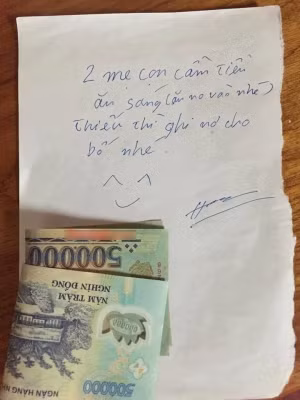 2 mẹ con cầm tiền
ăn sáng (ăn no vào nhé)
Thiếu thì ghi nợ cho
bố nhé.
500000
NĂM TRĂM
NGHÌN ĐỒNG
NGÂN HÀNG N
500000